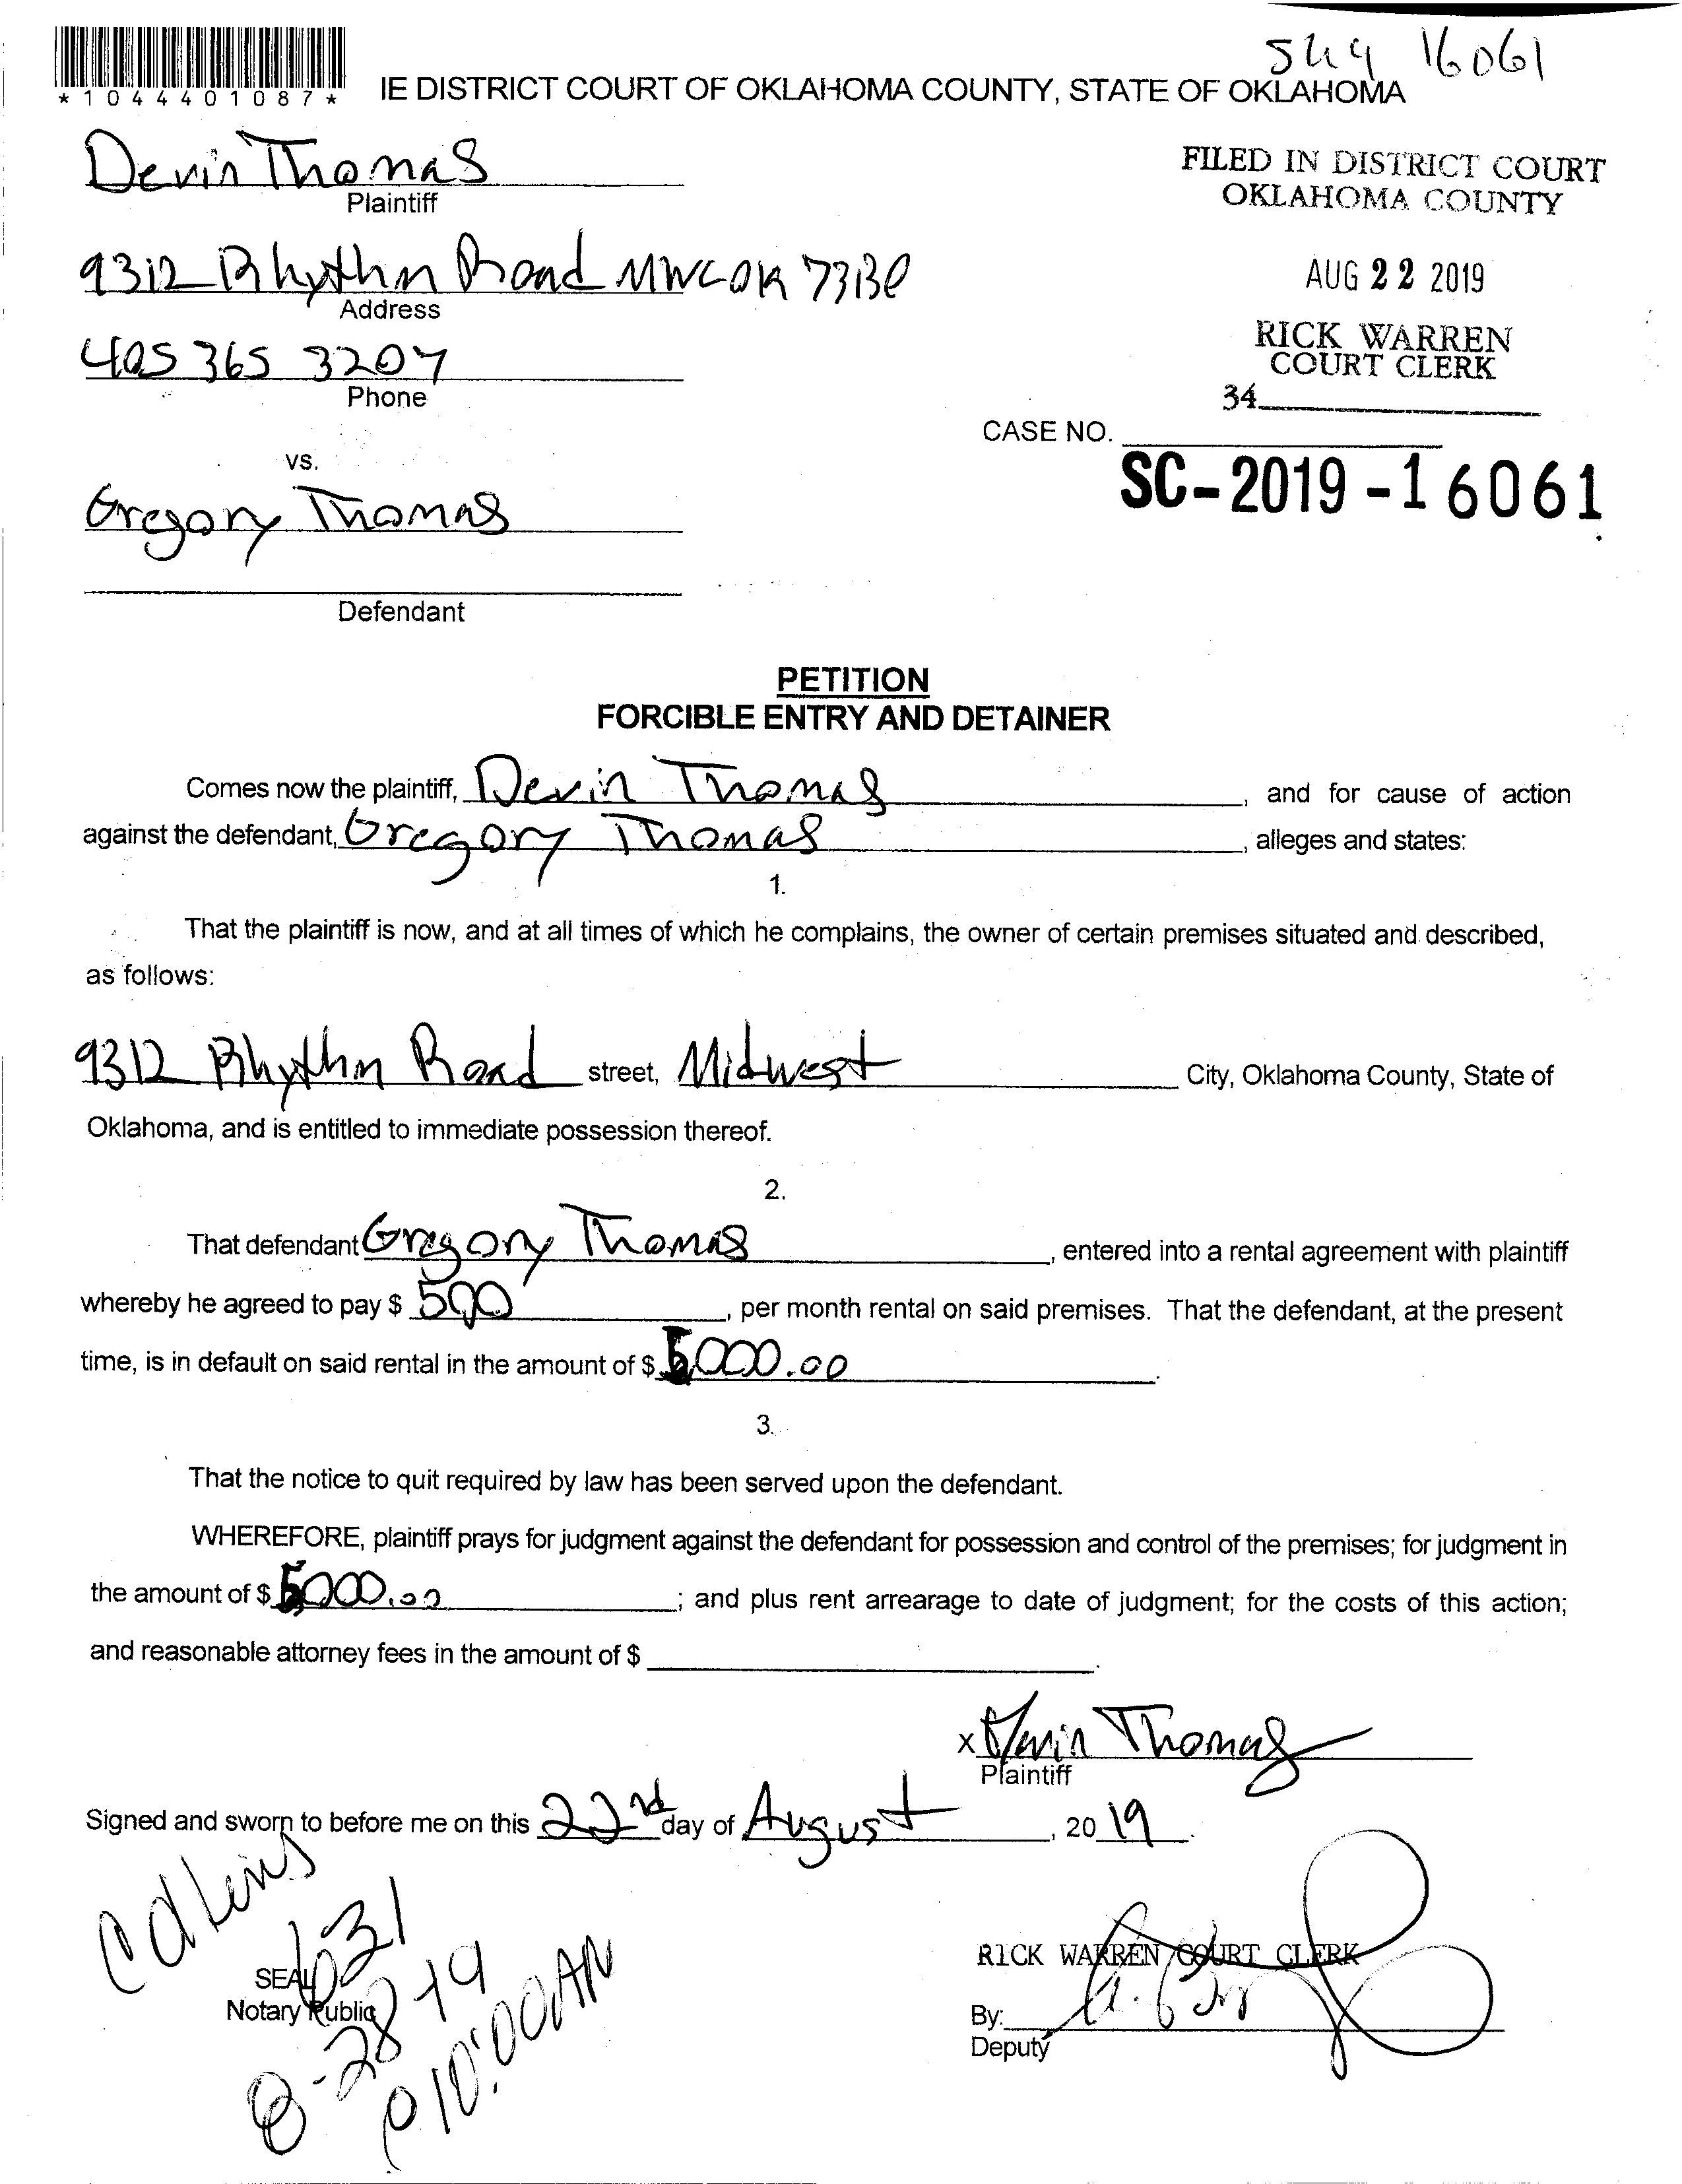 *1044401087*
IE DISTRICT COURT OF OKLAHOMA COUNTY, STATE OF OKLAHOMA
16061
Devin Thomas
Plaintiff
FILED IN DISTRICT COURT
OKLAHOMA COUNTY
9312 Rhythm Road MWC OK 73130
Address
AUG 22 2019
405 365 3207
Phone
RICK WARREN
COURT CLERK
34
CASE NO.
SC-2019-16061
vs.
Gregory Thomas
Defendant
PETITION
FORCIBLE ENTRY AND DETAINER
Comes now the plaintiff, Devin Thomas, and for cause of action
against the defendant, Gregory Thomas, alleges and states:
1.
That the plaintiff is now, and at all times of which he complains, the owner of certain premises situated and described,
as follows:
9312 Rhythm Road street, Midwest City, Oklahoma County, State of
Oklahoma, and is entitled to immediate possession thereof.
2.
That defendant Gregory Thomas, entered into a rental agreement with plaintiff
whereby he agreed to pay $ 500, per month rental on said premises. That the defendant, at the present
time, is in default on said rental in the amount of $ 5,000.00.
3.
That the notice to quit required by law has been served upon the defendant.
WHEREFORE, plaintiff prays for judgment against the defendant for possession and control of the premises; for judgment in
the amount of $ 5,000.00; and plus rent arrearage to date of judgment; for the costs of this action;
and reasonable attorney fees in the amount of $
x Devin Thomas
Plaintiff
Signed and sworn to before me on this 22nd day of August, 2019.
SEAL
Notary Public
8-28-19
10:00AM
RICK WARREN COURT CLERK
By:
Deputy